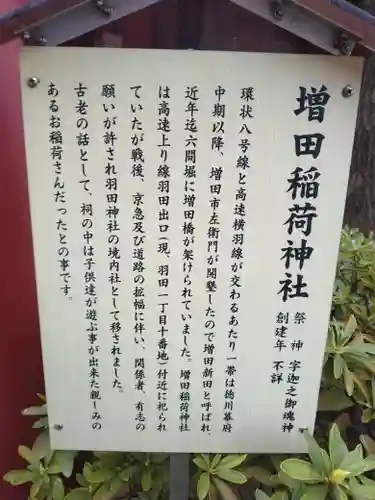 増田稲荷神社
祭神　宇迦之御魂神
創建年　不詳
環状八号線と高速横羽線が交わるあたり一帯は徳川幕府
中期以降、増田市左衛門が開墾したので増田新田と呼ばれ、
近年迄六間堀に増田橋が架けられていました。増田稲荷神社
は高速上り線羽田出口（現、羽田一丁目十番地）付近に祀られ
ていたが戦後、京急及び道路の拡幅に伴い、関係者、有志の
願いが許され羽田神社の境内社として移されました。
古老の話として、祠の中は子供達が遊ぶ事が出来た親しみの
あるお稲荷さんだったとの事です。